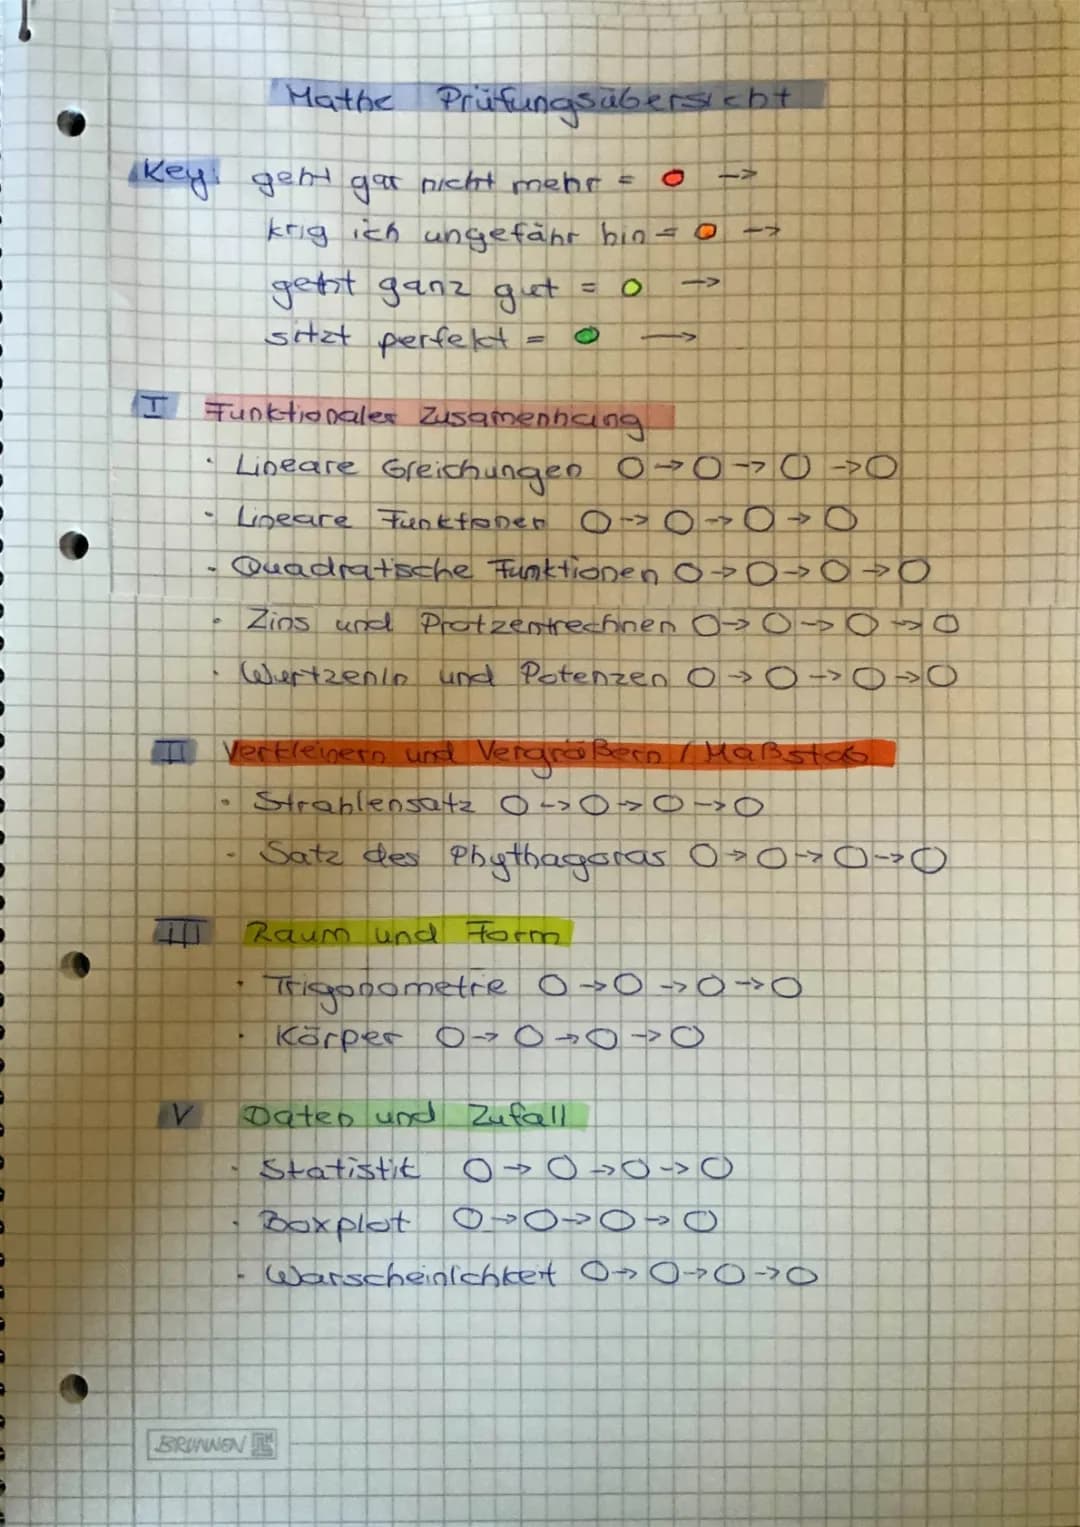 Mathe Prüfungsübersicht
Key: geht gar nicht mehr = O ->
krig ich ungefähr hin = O ->
geht ganz gut = O ->
sitzt perfekt = O ->
I Funktionaler Zusamenhang
· Lineare Gleichungen O->O->O->O
· Lineare Funktionen O->O->O->O
· Quadratische Funktionen O->O->O->O
· Zins und Protzentrechnen O->O->O->O
· Wurtzenln und Potenzen O->O->O->O
II Verkleinern und Vergrößern / Maßstab
· Strahlensatz O->O->O->O
· Satz des Phythagoras O->O->O->O
III Raum und Form
· Trigonometrie O->O->O->O
· Körper O->O->O->O
V Daten und Zufall
· Statistik O->O->O->O
· Boxplot O->O->O->O
· Warscheinlichkeit O->O->O->O
BRUNNEN